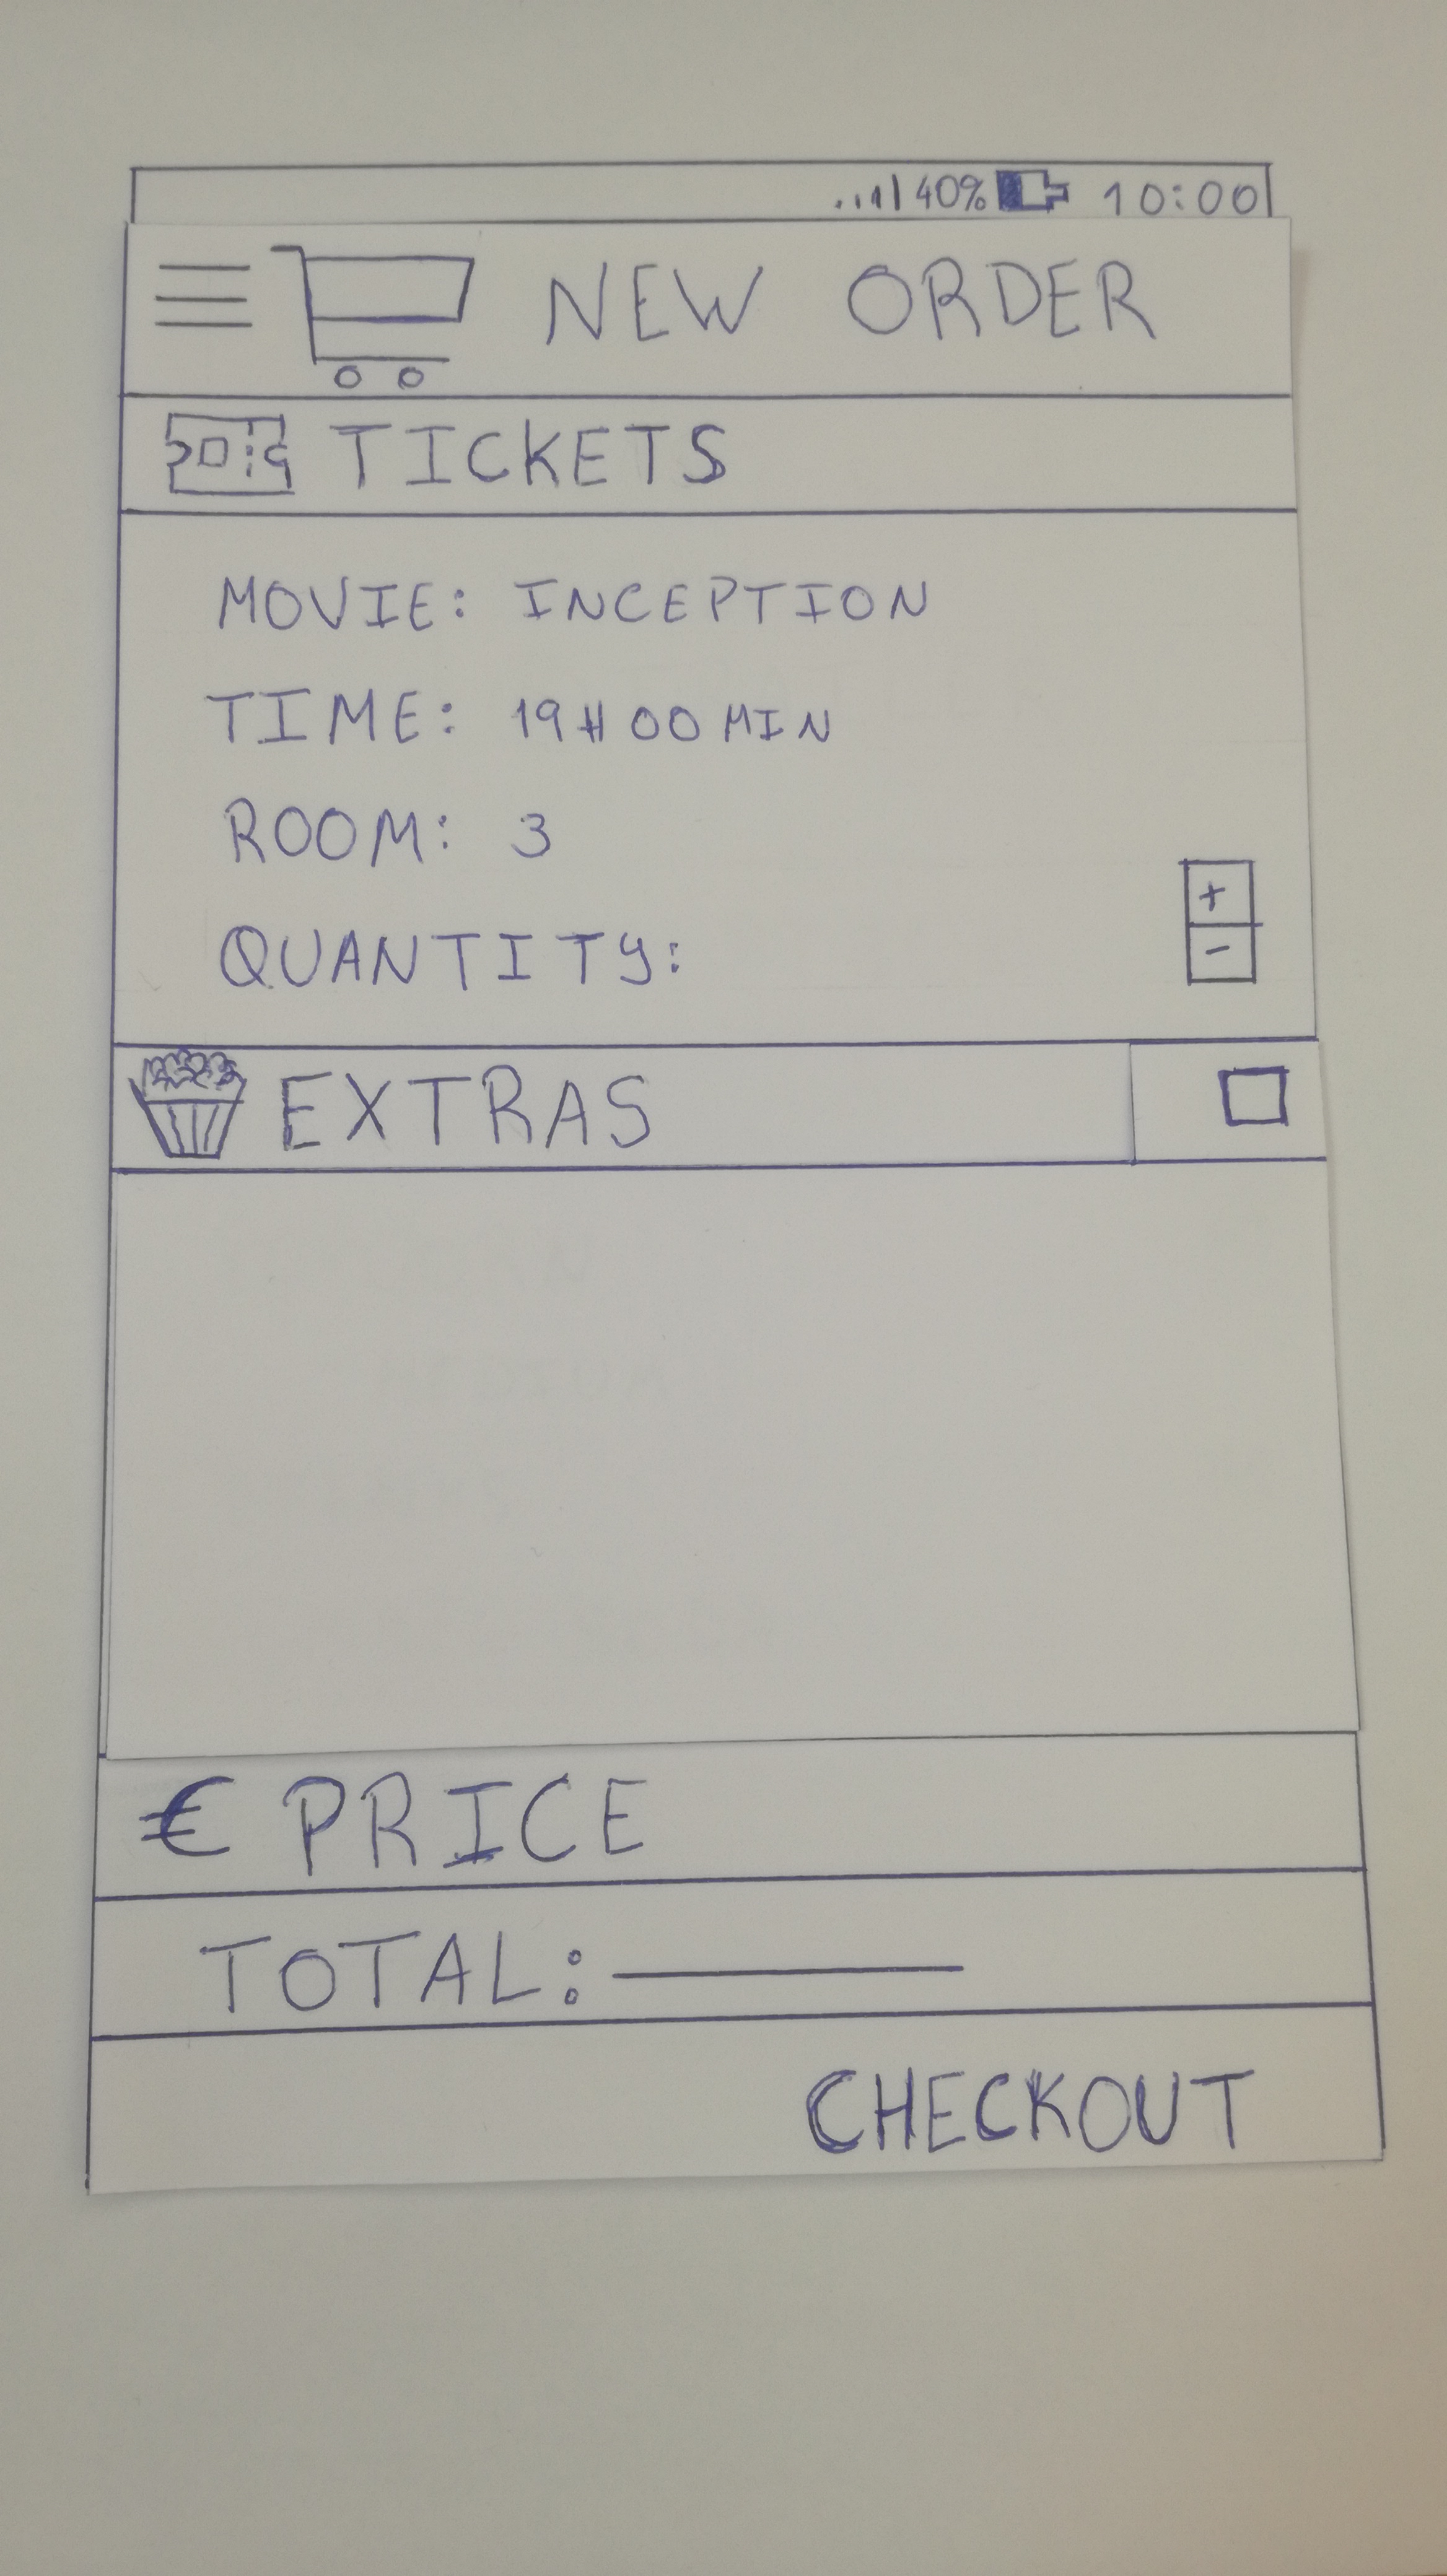 40% 10:00
NEW ORDER
TICKETS
MOVIE: INCEPTION
TIME: 19H00MIN
ROOM: 3
QUANTITY:
+
-
EXTRAS
€ PRICE
TOTAL:
CHECKOUT